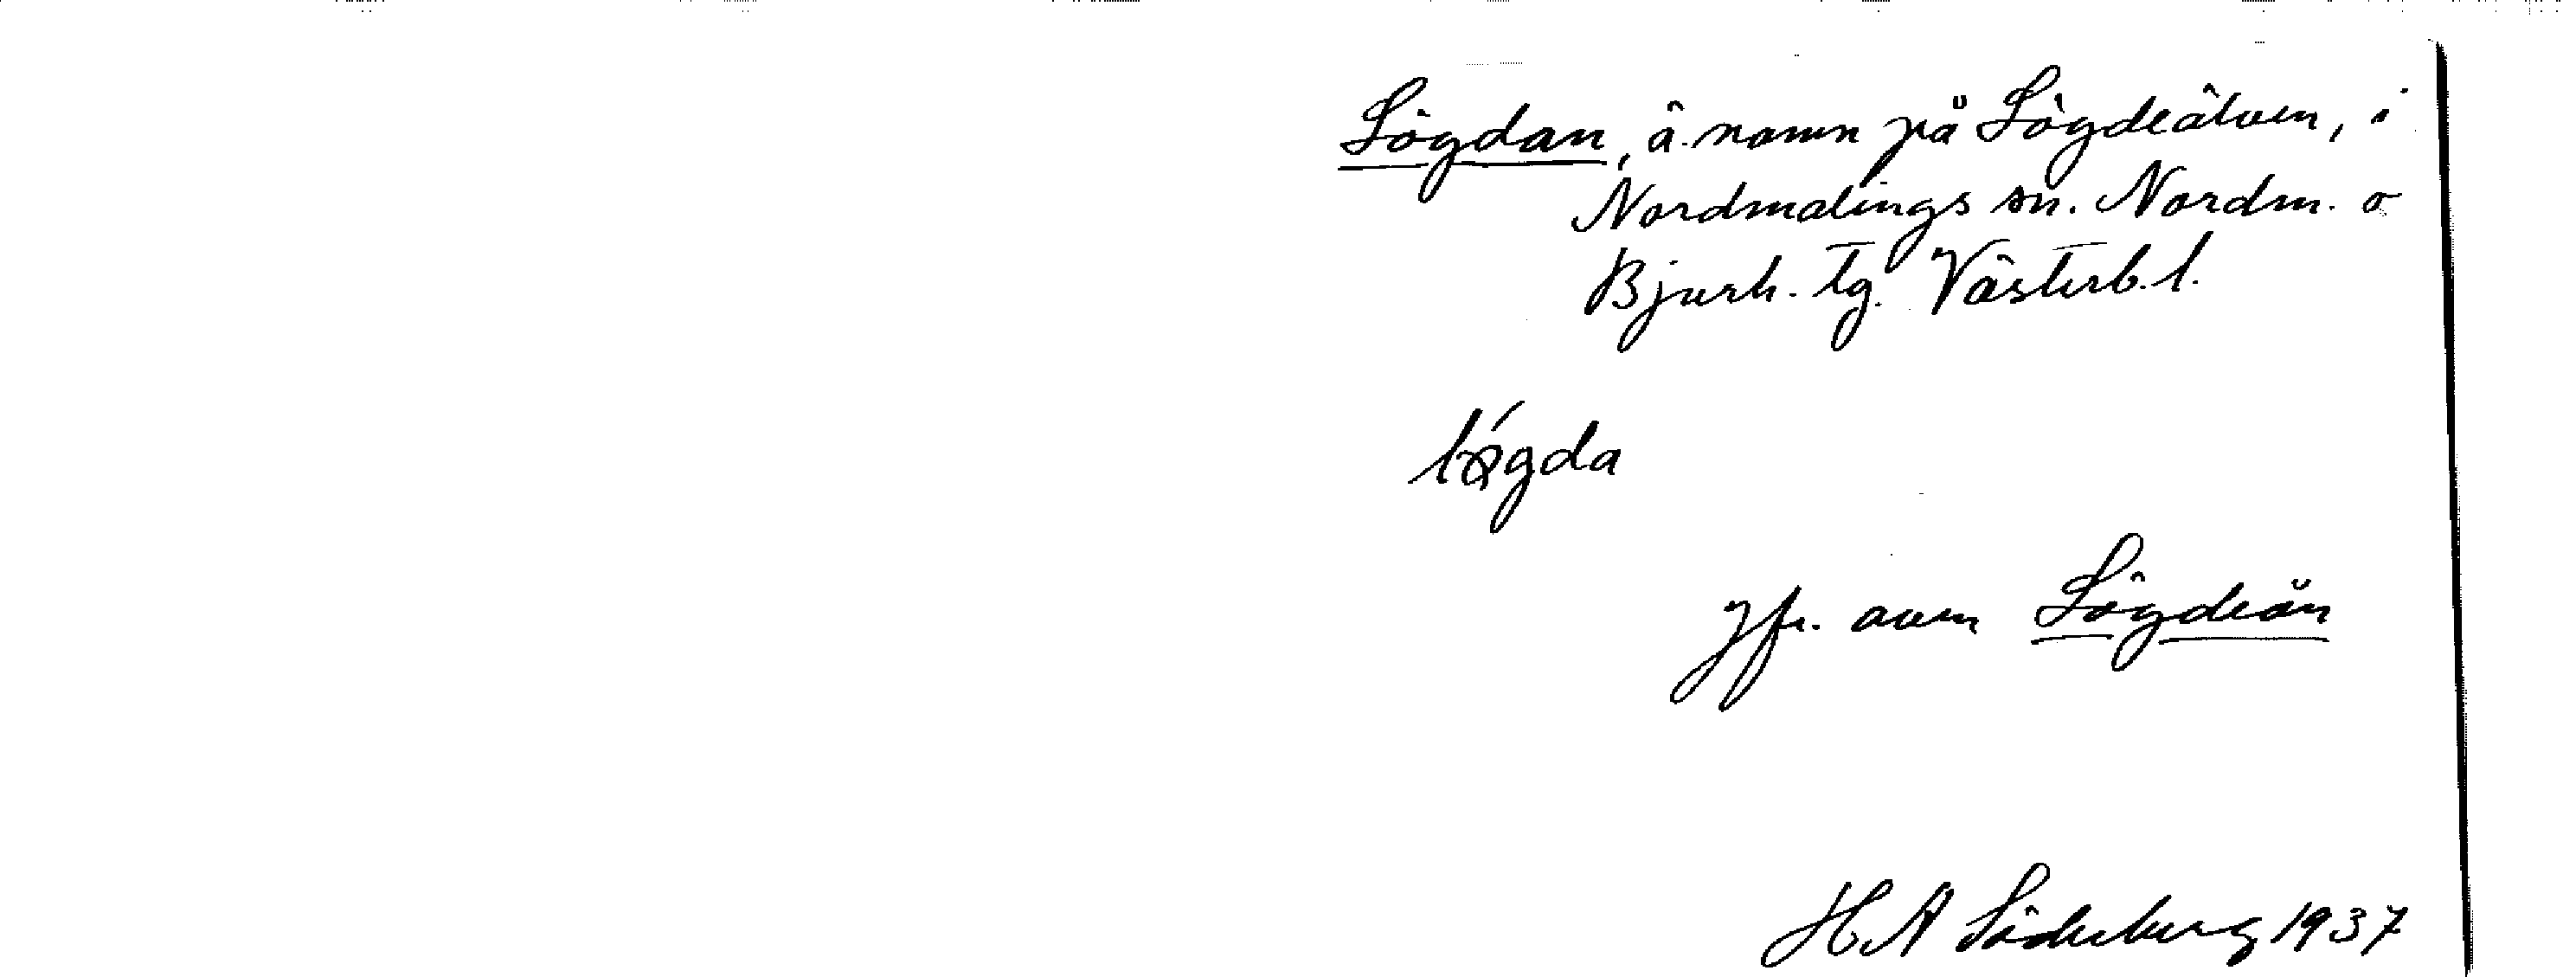 Lögdan, å. namn på Lögdeälven, i
Nordmalings sn. Nordm. o
Bjurh. tg. Västerb. l.
lǿgda
Jfr. även Lögdeån
H A Söderberg 1937